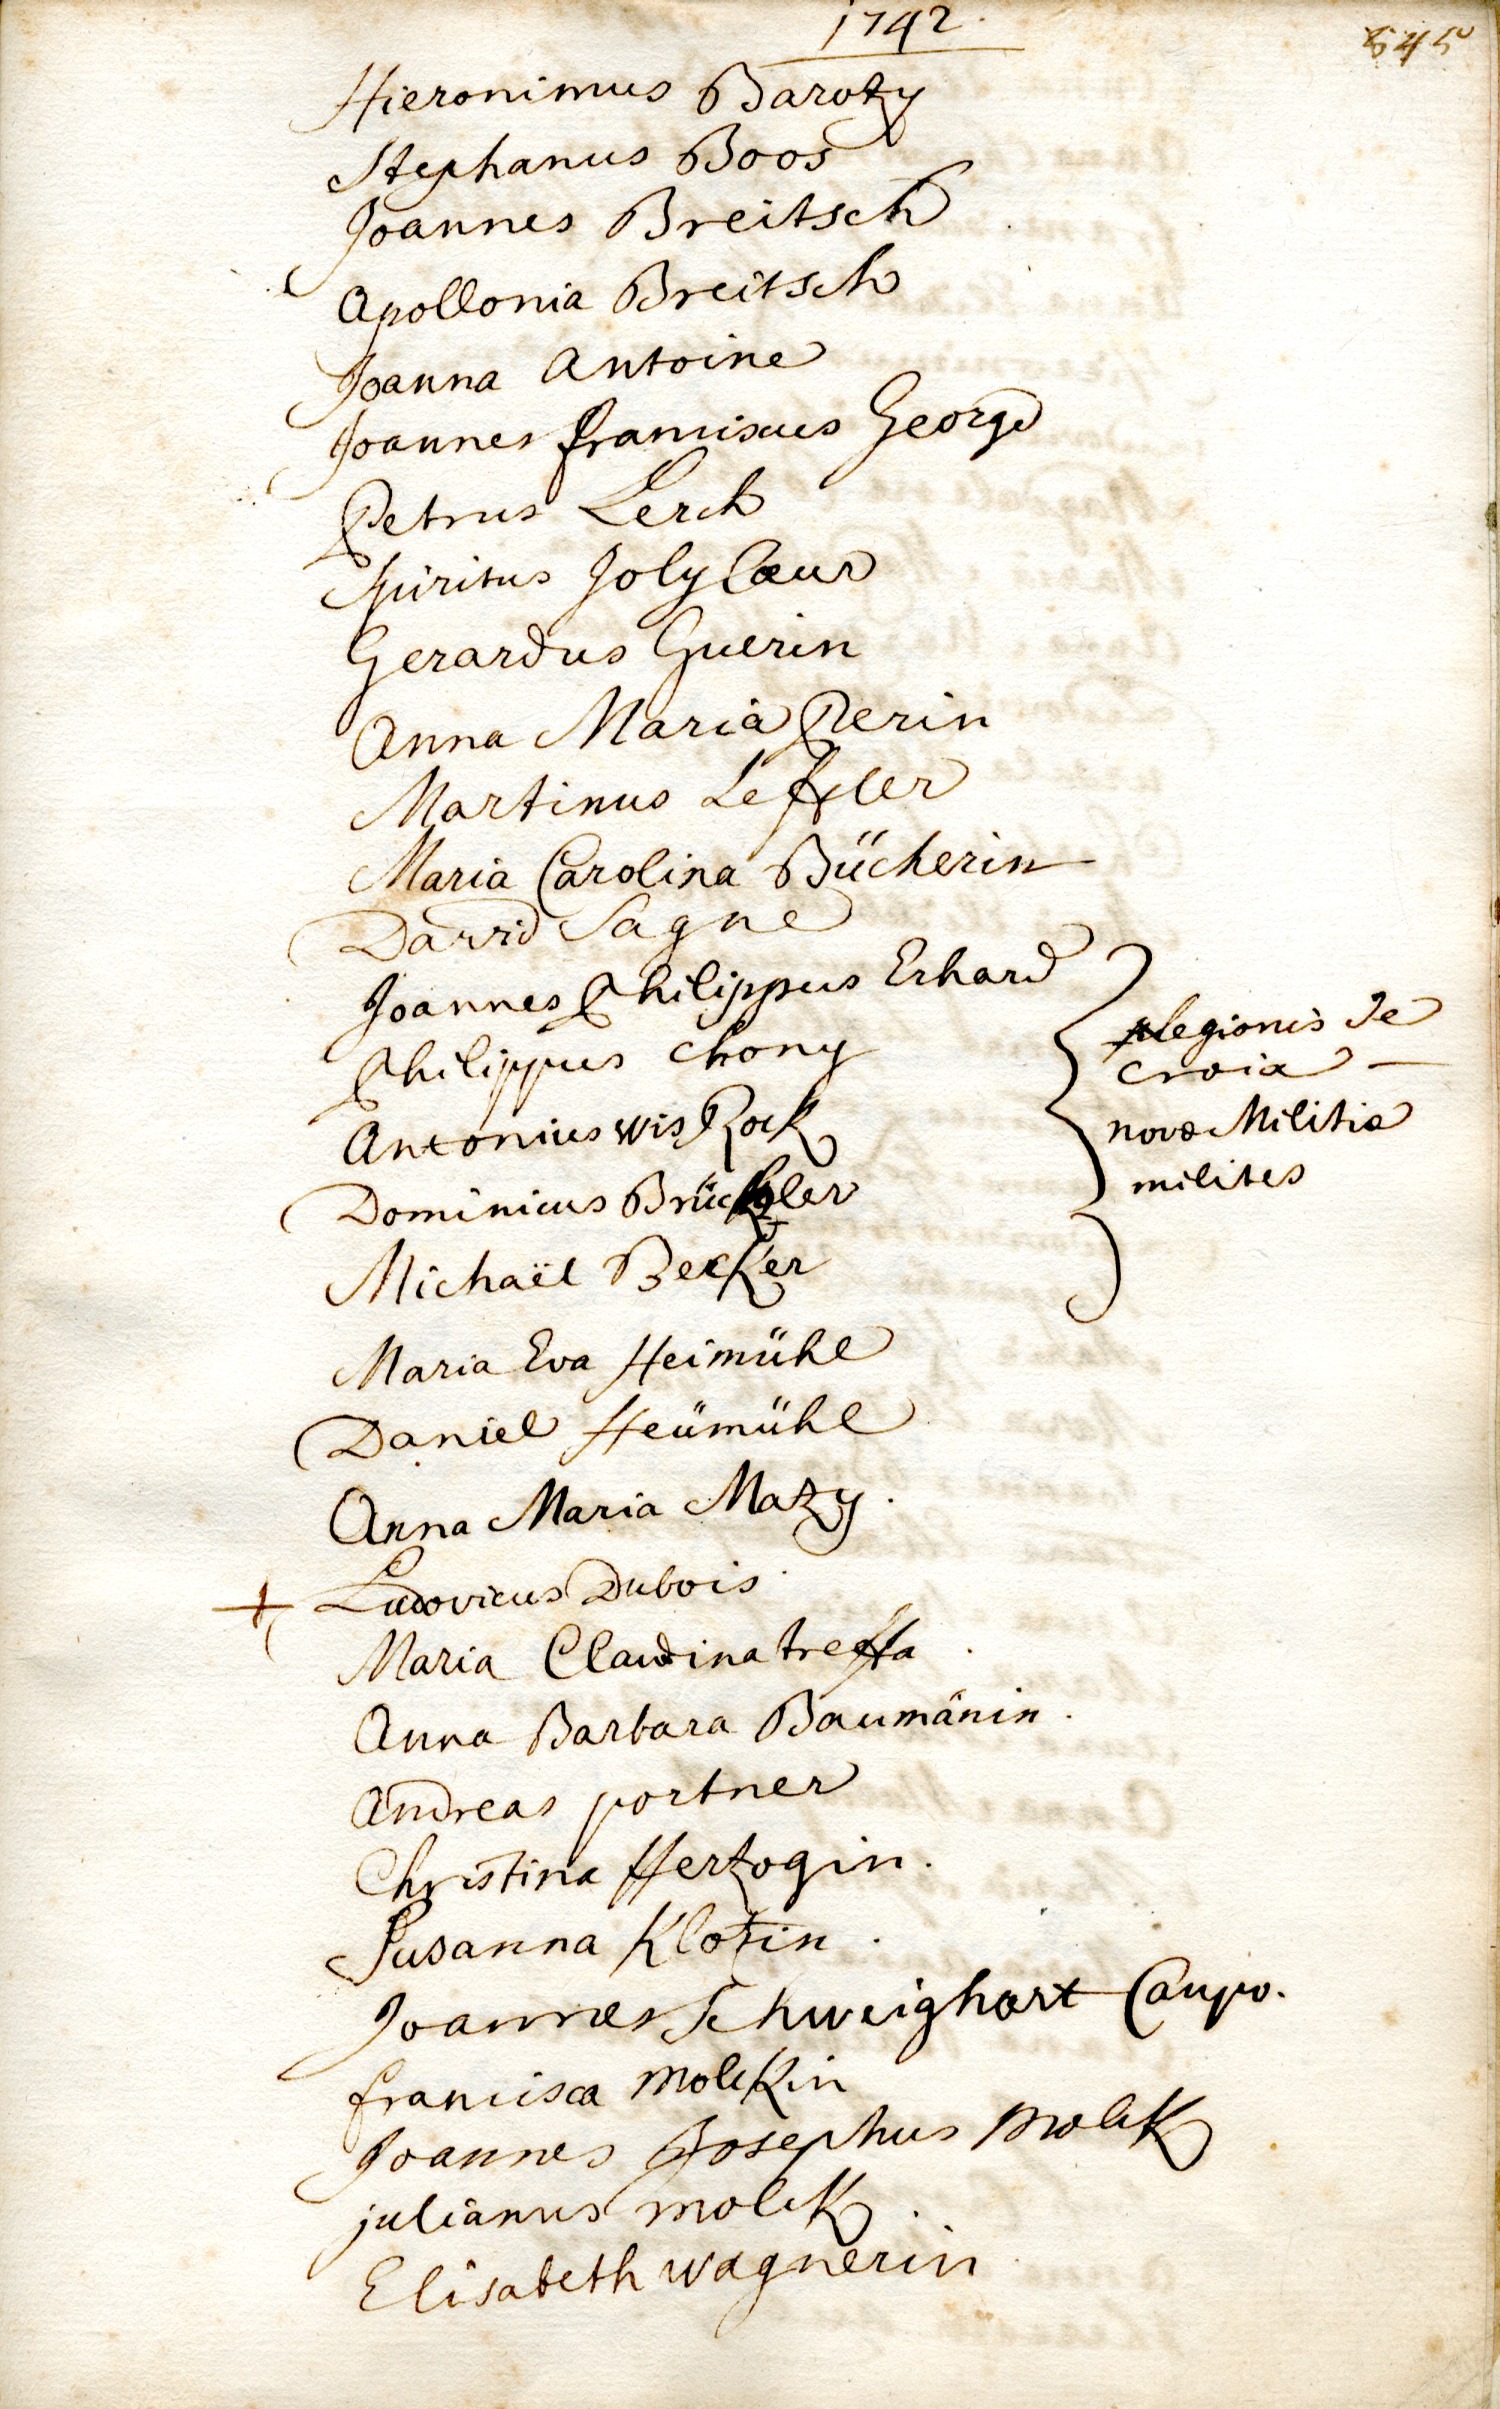 1742.
545
Hieronimus Barozy
Stephanus Boos
Joannes Breitsch
Apollonia Breitsch
Joanna Antoine
Joannes franciscus George
Petrus Lerch
spiritus Joly Cœur
Gerardus Guerin
Anna Maria Perin
Martinus Leffler
Maria Carolina Bücherin
David Sagne
Joannes Philippus Erhard
Philippus Chony
Antonius wis Rock
Dominicus Brückler
Michaël Becker
legionis de
Croia
novæ Militiæ
milites
Maria Eva Heimühl
Daniel Heümühl
Anna Maria Mazy.
+ Ludovicus Dubois.
Maria Claudina treffa.
Anna Barbara Baumänin.
Andreas portner
Christina Hertzogin.
Susanna Klotzin.
Joannes Schweighart Caupo.
francisca molckin
Joannes Josephus molck
julianus molck.
Elisabeth wagnerin